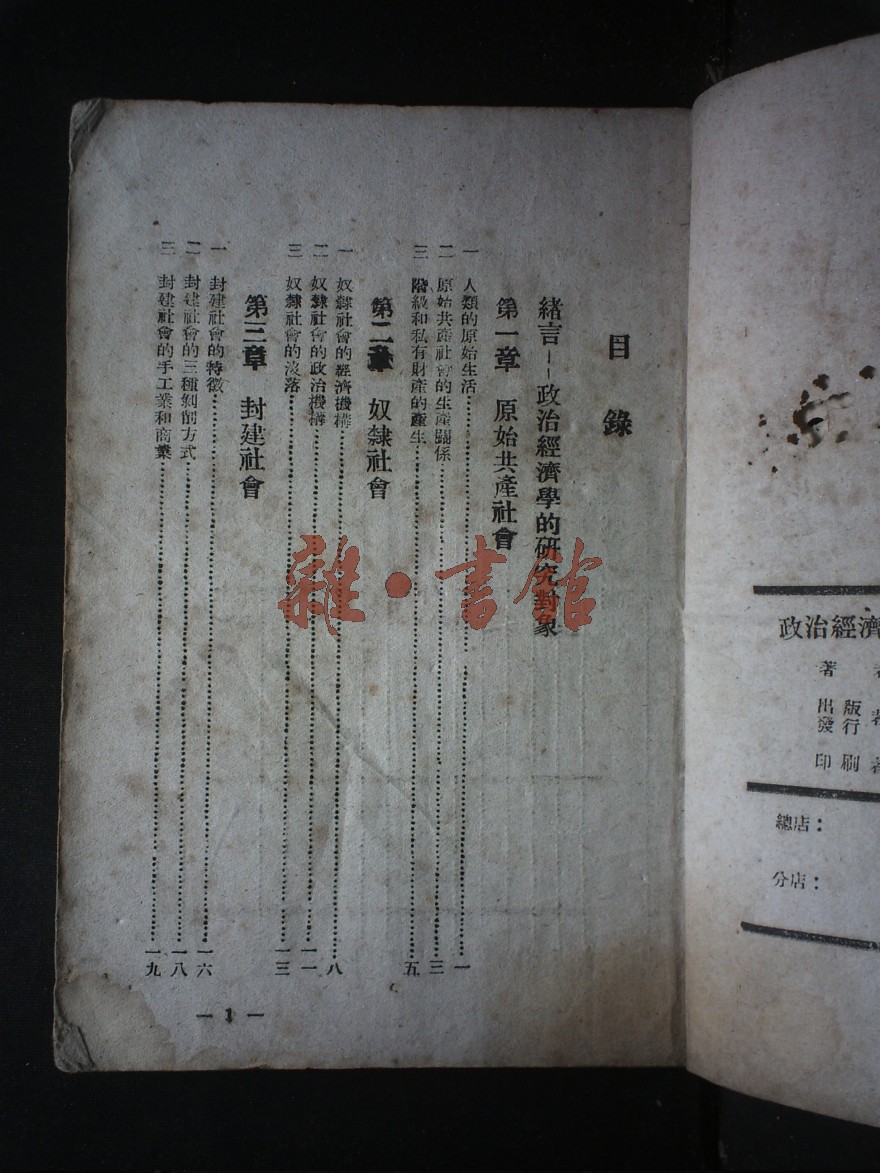 目錄
緒言——政治經濟學的研究對象
第一章 原始共產社會
一 人類的原始生活…………一
二 原始共產社會的生產關係…………三
三 階級和私有財產的產生…………五
第二章 奴隸社會
一 奴隸社會的經濟機構…………八
二 奴隸社會的政治機構…………一一
三 奴隸社會的沒落…………一三
第三章 封建社會
一 封建社會的特徵…………一六
二 封建社會的三種剝削方式…………一八
三 封建社會的手工業和商業…………一九
— 1 —
雜·書館
政治經濟
著
出版
發行
印刷
總店：
分店：